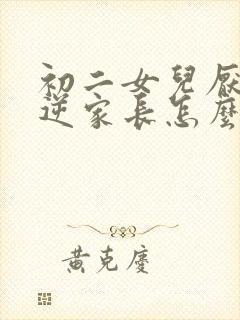 初二女兒厭
逆家長怎麼
黃克慶